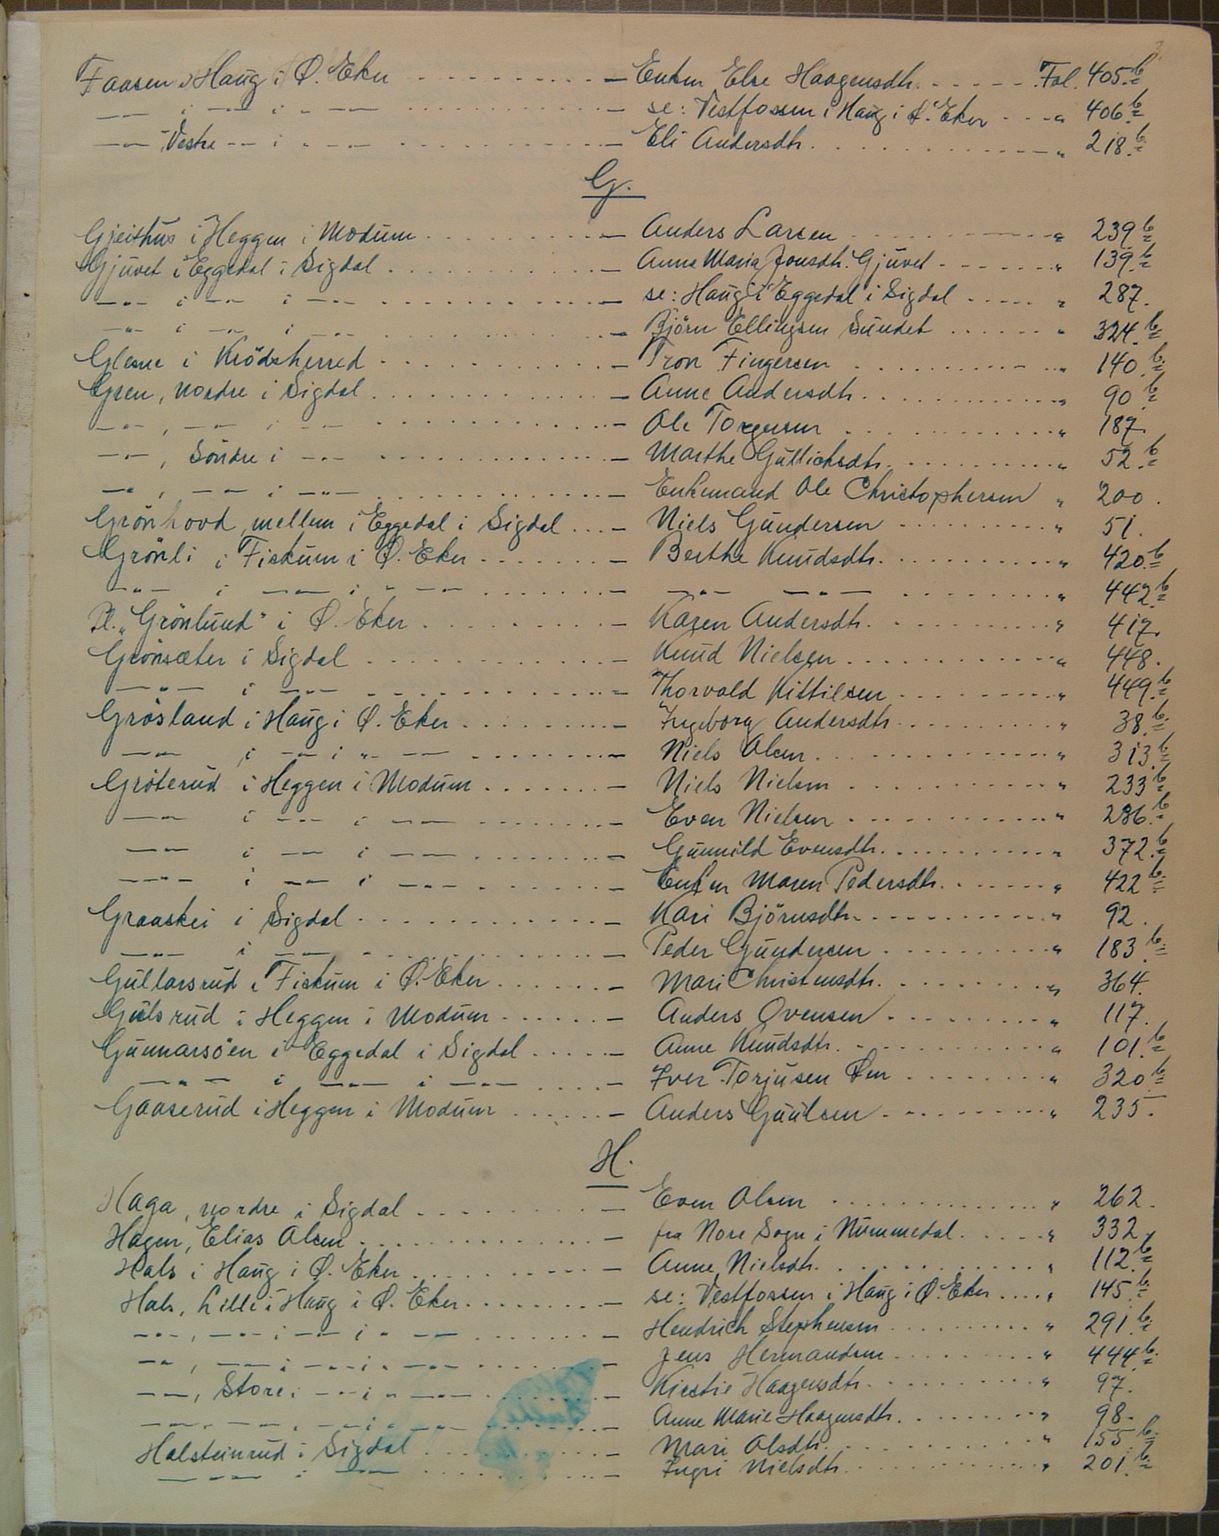 Faasen i Haug i Ø. Eker - Enken Else Haagensdtr. Fol. 405.b
—"— i — i - — - se: Vestfossen i Haug i Ø. Eker " 406.b
—"— Vestre —"— i - — - Eli Andersdtr. " 218.b
G.
Gjeithus i Heggen i Modum - Anders Larsen " 239.b
Gjuvet i Eggedal i Sigdal - Anna Maria Jonsdtr. Gjuvet " 139.b
—"— i —"— i —"— - se: Haug i Eggedal i Sigdal " 287.
—"— i —"— i —"— - Björn Ellingsen Sundet " 324.b
Glesne i Krödsherred - Tron Fingersen " 140.b
Gren, nordre i Sigdal - Anne Andersdtr. " 90.b
—"—, —"— i —"— - Ole Torgersen " 187.
—"—, Söndre i —"— - Marthe Gullichsdtr. " 52.b
—"—, —"— i —"— - Enkemand Ole Christophersen " 200.
Grönhovd, mellem i Eggedal i Sigdal - Niels Gundersen " 51.
Grönli i Fiskum i Ø. Eker - Berthe Knudsdtr. " 420.b
—"— i —"— i " —"— - —"— —"— " 442.b
Pl. „Grönlund" i Ø. Eker - Karen Andersdtr. " 417.
Grönsæter i Sigdal - Knud Nielsen " 448.
—"— i —"— - Thorvald Kittilsen " 449.b
Grösland i Haug i Ø. Eker - Ingeborg Andersdtr. " 38.b
—"— i —"— i " —"— - Niels Olsen " 313.b
Gröterud i Heggen i Modum - Niels Nielsen " 233.b
—"— i —"— i —"— - Even Nielsen " 286.b
—"— i —"— i —"— - Gunnild Evensdtr. " 372.b
—"— i —"— i —"— - Enken Maren Pedersdtr. " 422.b
Graaskei i Sigdal - Kari Björnsdtr. " 92.
—"— i —"— - Peder Gundersen " 183.b
Gullarsrud i Fiskum i Ø. Eker - Mari Christensdtr. " 364.
Gulsrud i Heggen i Modum - Anders Ovensen " 117.
Gunnarsöen i Eggedal i Sigdal - Anne Knudsdtr. " 101.b
—"— i —"— i —"— - Iver Torjusen Øen " 320.b
Gaaserud i Heggen i Modum - Anders Guulsen " 235.
H.
Haga, nordre i Sigdal - Even Olsen " 262.
Hagen, Elias Olsen - fra Nore Sogn i Nummedal " 332.
Hals i Haug i Ø. Eker - Anne Nielsdtr. " 112.b
Hals, Lille i Haug i Ø. Eker - se: Vestfossen i Haug i Ø. Eker " 145.b
—"—, —"— i —"— i " —"— - Hendrich Stephensen " 291.b
—"—, —"— i —"— i " —"— - Jens Hermandsen " 444.b
—"—, Store i —"— i " —"— - Kirstie Haagensdtr. " 97.
—"—, —"— i —"— i " —"— - Anne Marie Haagensdtr. " 98.
Halsteinrud i Sigdal - Mari Olsdtr. " 155.b
—"— i —"— - Ingri Nielsdtr. " 201.b